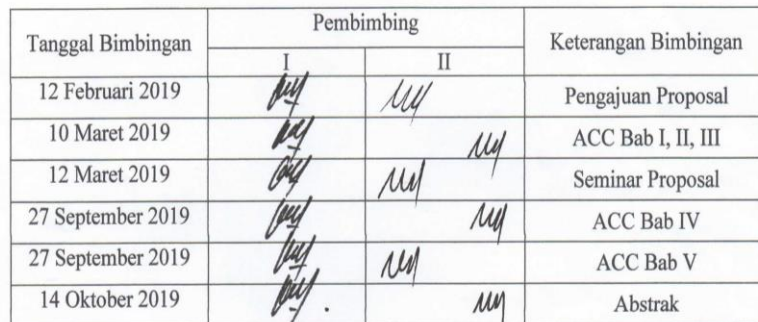 Tanggal Bimbingan Pembimbing Keterangan Bimbingan
I II
12 Februari 2019 Pengajuan Proposal
10 Maret 2019 ACC Bab I, II, III
12 Maret 2019 Seminar Proposal
27 September 2019 ACC Bab IV
27 September 2019 ACC Bab V
14 Oktober 2019 Abstrak